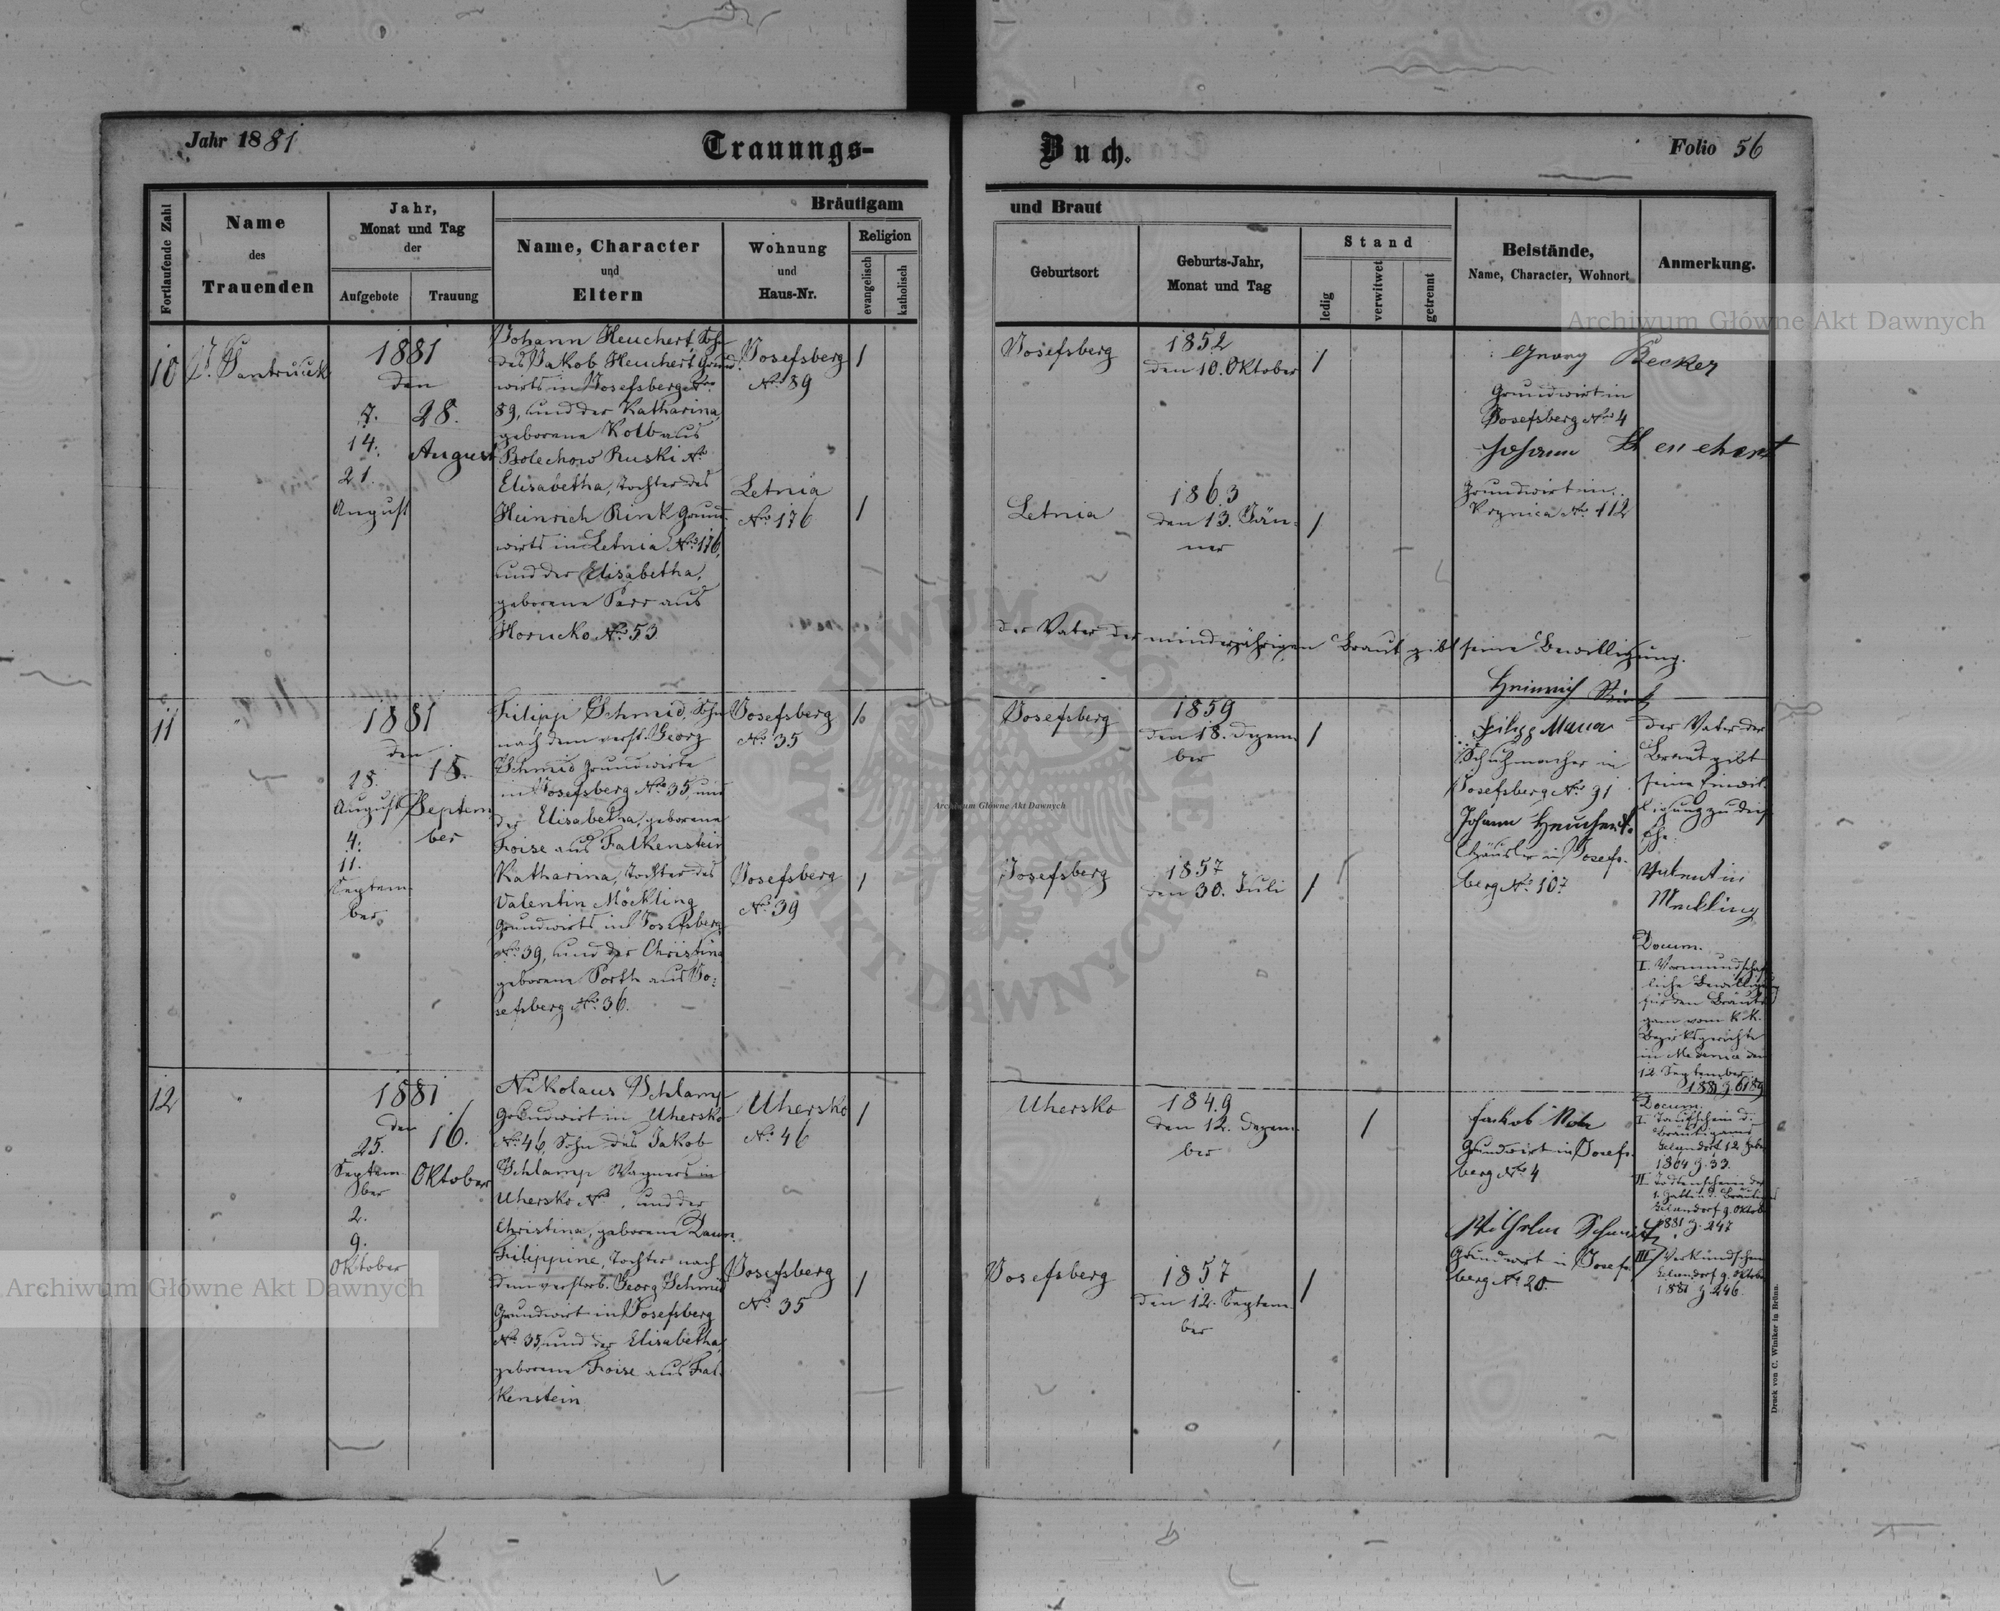 Jahr 1881
Trauungs-
Buch.
Folio 56
Fortlaufende Zahl
Name
des
Trauenden
Jahr,
Monat und Tag
der
Aufgebote
Trauung
Bräutigam
Name, Character
und
Eltern
Wohnung
und
Haus-Nr.
Religion
evangelisch
katholisch
und Braut
Geburtsort
Geburts-Jahr,
Monat und Tag
Stand
ledig
verwitwet
getrennt
Beistände,
Name, Character, Wohnort
Anmerkung.
10
1881
den
7.
14.
21.
August
28.
August
Johann Heuchert, Sohn
des Jakob Heuchert Grund-
wirts in Josefsberg No
89, und der Katharina,
geborene Kolb aus
Bolechow Ruski No
Elisabetha, Tochter des
Heinrich Rink Grund-
wirts in Letnia No 176,
und der Elisabetha,
geborene Parr aus
Horucko No 53.
Josefsberg
No 89
Letnia
No 176
Josefsberg
1852
den 10. Oktober
Letnia
1863
den 13. Jän-
ner
Georg Becker
Grundwirt in
Josefsberg No 4
Johann Heuchert
Grundwirt in
No 112
der Vater der minderjährigen Braut gibt seine Bewilligung.
Heinrich Rink
11
"
1881
den
28.
August
4.
11.
Septem-
ber
18.
Septem-
ber
Filipp Schmid, Sohn
nach dem verst. Georg
Schmid Grundwirte
in Josefsberg No 35, und
der Elisabetha, geborene
Froise aus Falkenstein
Katharina, Tochter des
Valentin Möckling
Grundwirts in Josefsberg
No 39, und der Christina
geborene Porth aus Jo-
sefsberg No 36.
Josefsberg
No 35
Josefsberg
No 39
Josefsberg
1859
den 18. Dezem-
ber
Josefsberg
1857
den 30. Juli
Filipp Manz
Schuhmacher in
Josefsberg No 91
Johann Heuchert
Häusler in Josefs-
berg No 107
der Vater der
Braut gibt
seine Einwil-
ligung zu dieser
Ehe.
Valentin
Meckling
Docum.
I. Vormundschaft-
liche Bewilligung
für den Bräuti-
gam vom K.K.
Bezirksgerichte
in Medenice den
12. September
1881
12
"
1881
den
25.
Septem-
ber
2.
9.
Oktober
16.
Oktober
Nikolaus Schlamp
Grundwirt in Uhersko
No 46, Sohn des Jakob
Schlamp Wagners in
Uhersko No , und der
Christina, geborene Daum.
Filippine, Tochter nach
dem verstorb. Georg Schmid
Grundwirt in Josefsberg
No 35, und der Elisabetha,
geborene Froise aus Fal-
kenstein
Uhersko
No 46
Josefsberg
No 35
Uhersko
1849
den 12. Dezem-
ber
Josefsberg
1857
den 12. Septem-
ber
Jakob
Grundwirt in Josefs-
berg No 4
Wilhelm Schmidt
Grundwirt in Josefs-
berg No 20.
Docum.
I. Taufschein d.
Bräutigams
Gelsendorf 12.
1864 z. 33.
II. Todtenschein der
1. Gattin d. Bräutigams
Gelsendorf 9. Oktob.
1881 z. 247
III. Verkundschein
Gelsendorf 9. Oktob.
1881 z. 246.
Druck von C. Winiker in Brünn.
Archiwum Główne Akt Dawnych
Archiwum Główne Akt Dawnych
Archiwum Główne Akt Dawnych
ARCHIWUM GŁÓWNE
AKT DAWNYCH